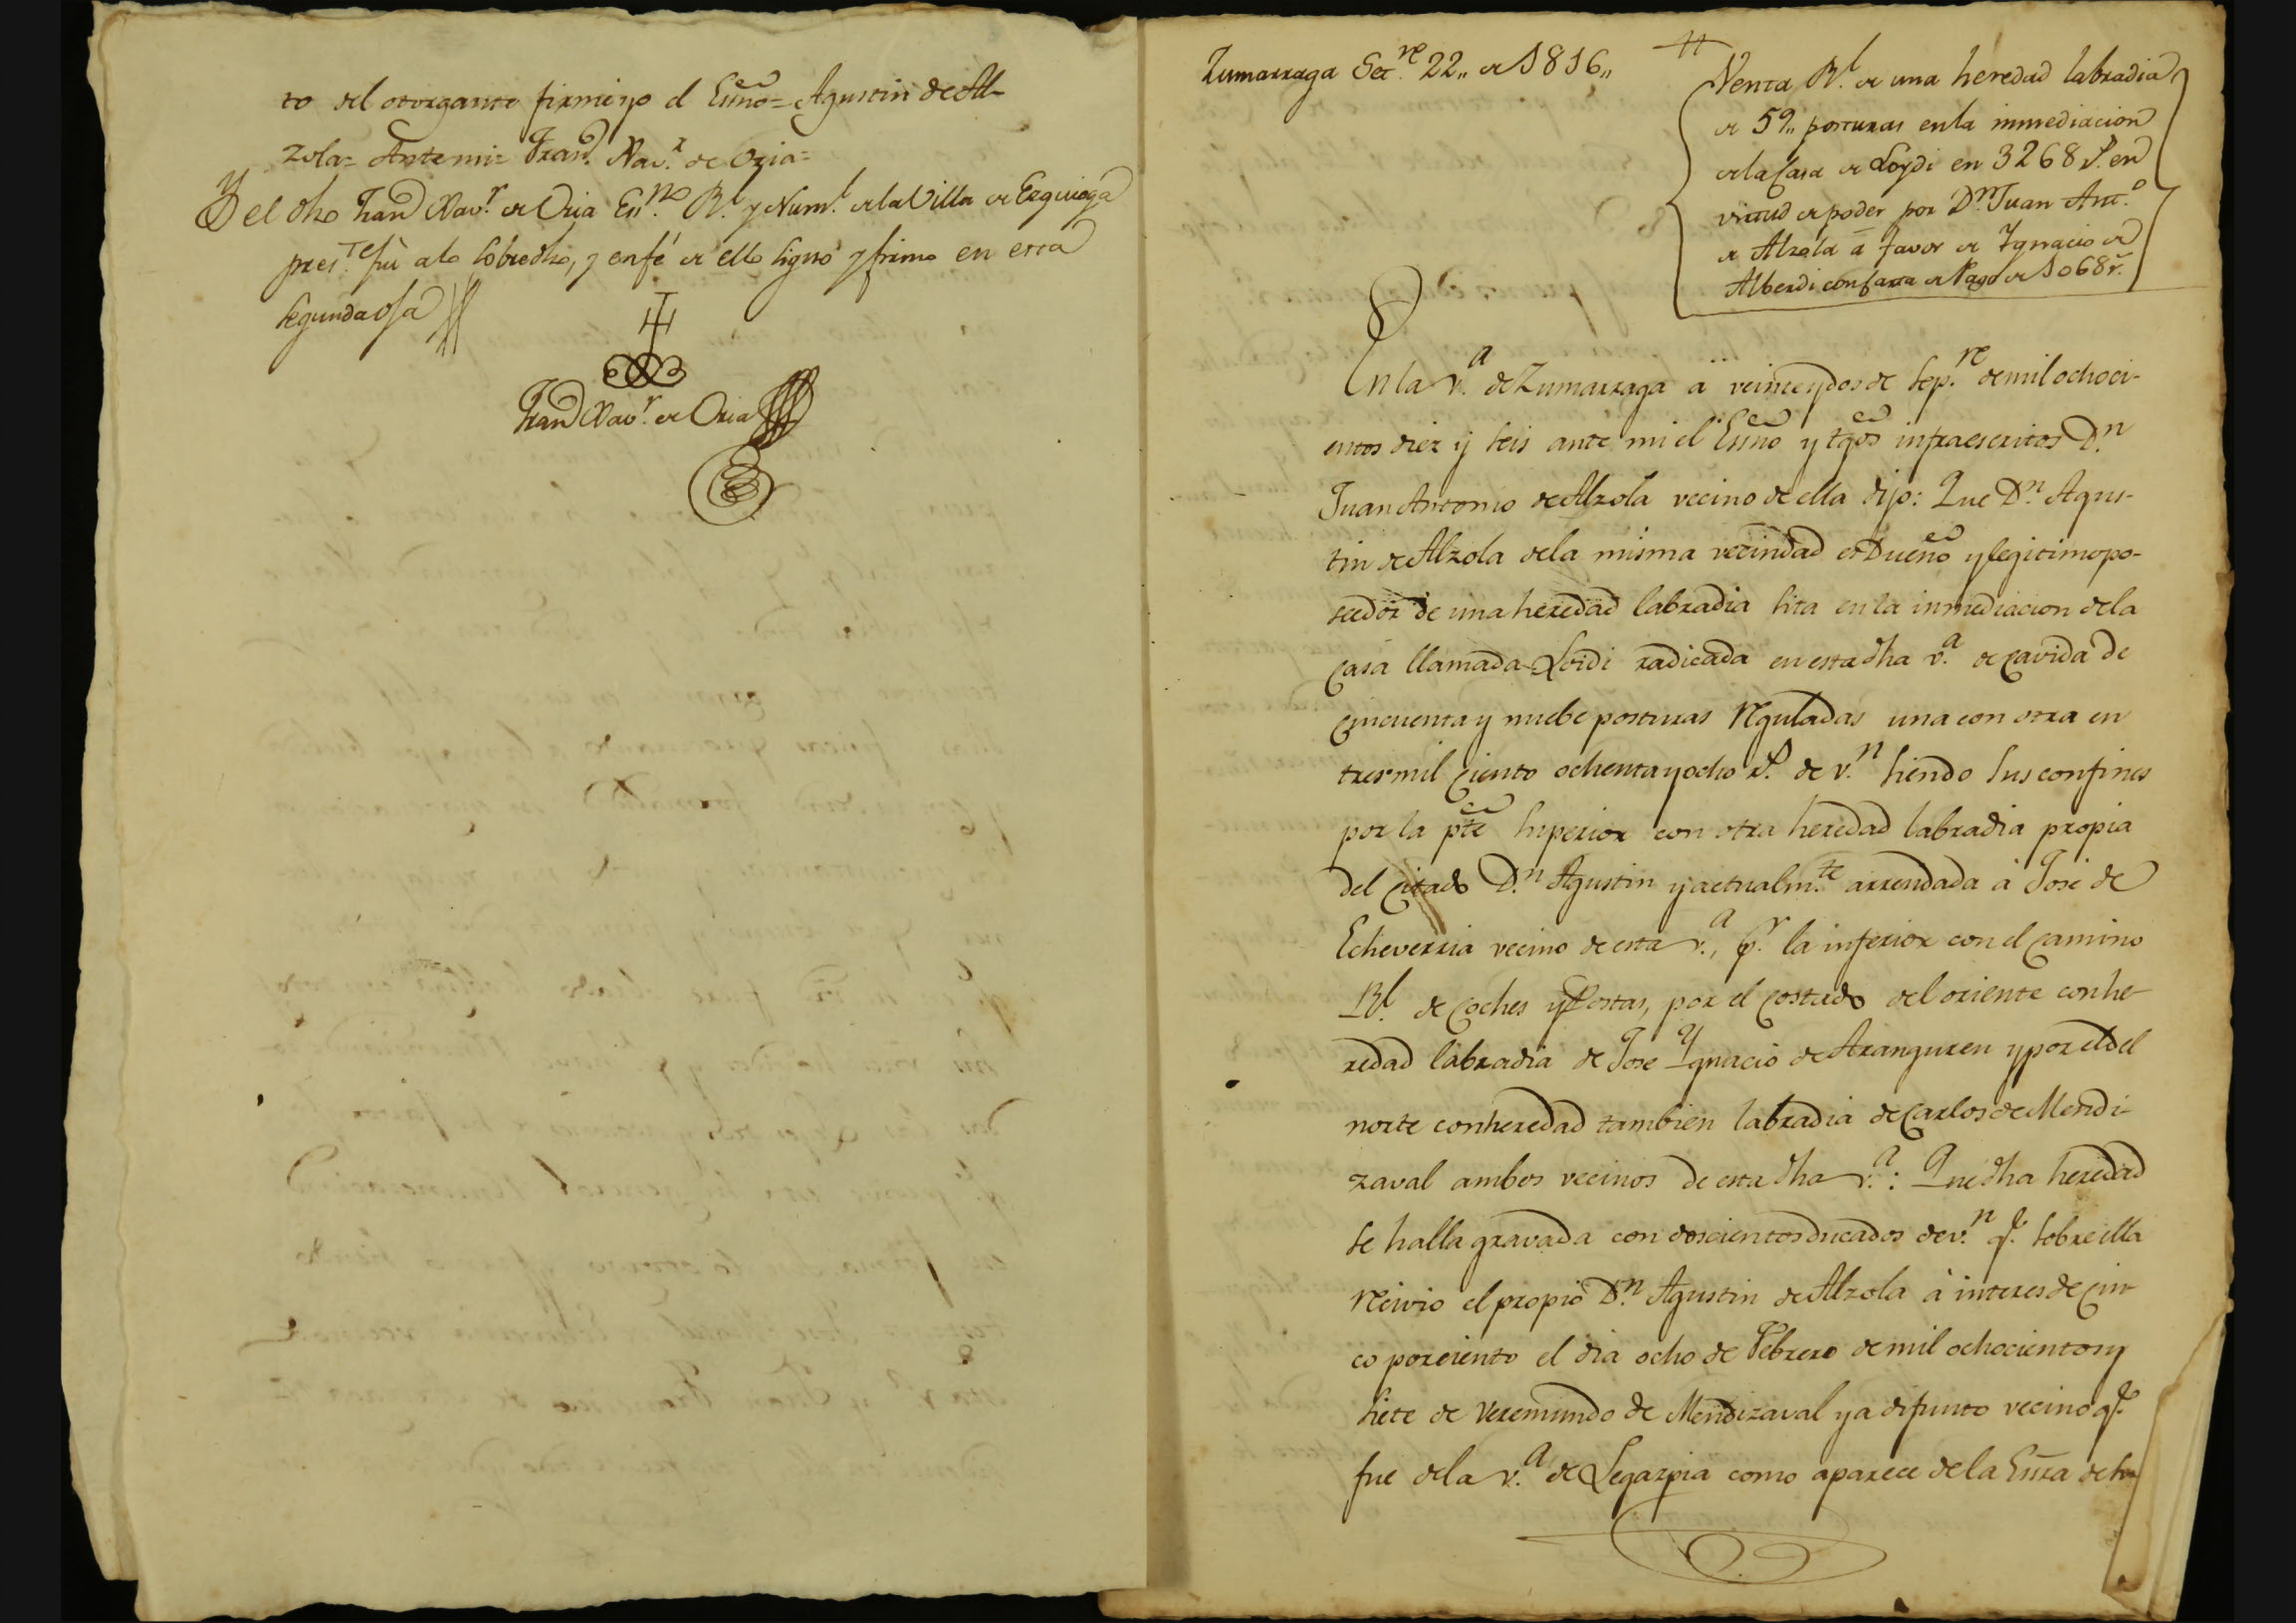 to del otorgante firme yo el Essno = Agustin de Al-
zola = Ante mi = Franco. Xavr. de Oria =
Yo el dho Franco Xavr. de Oria Essno. Rl. y Numl. de la Villa de Ezquioga
preste. fui a lo sobredho, y en fé de ello signo y firmo en esta
segunda oja
Franco Xavr. de Oria
Zumarraga Setre. 22,, de 1816,,
Venta Rl. de una heredad labradia
de 59,, posturas en la inmediacion
de la Casa de Loydi en 3268 rs. en
virtud de poder por Dn. Juan Anto.
de Alzola á favor de Ygnacio de
Alberdi con carta de Pago de 1068 r.
En la va. de Zumarraga a veinte y dos de Sepre. de mil ochoci-
entos diez y seis ante mi el Essno y tgos infraescritos Dn.
Juan Antonio de Alzola vecino de ella dijo: Que Dn. Agus-
tin de Alzola de la misma vecindad es Dueño y legitimo po-
seedor de una heredad labradia sita en la inmediacion de la
casa llamada Loidi radicada en esta dha va. de cavida de
cincuenta y nuebe posturas reguladas una con otra en
tres mil ciento ochenta y ocho rs. de vn. siendo sus confines
por la pte superior con otra heredad labradia propia
del citado Dn. Agustin y actualmte. arrendada á José de
Echeverria vecino de esta va., pr. la inferior con el camino
Rl. de coches y Postas, por el costado del oriente con he-
redad labradia de Jose Ygnacio de Aranguren y por el del
norte con heredad tambien labradia de Carlos de Mendi-
zaval ambos vecinos de esta dha va.: Que dha heredad
se halla gravada con doscientos ducados de vn. qe. sobre ella
recivio el propio Dn. Agustin de Alzola á interes de cin-
co por ciento el dia ocho de Febrero de mil ochocientos y
siete de Veremundo de Mendizaval ya difunto vecino qe.
fue de la va. de Legazpia como aparece de la Essra de